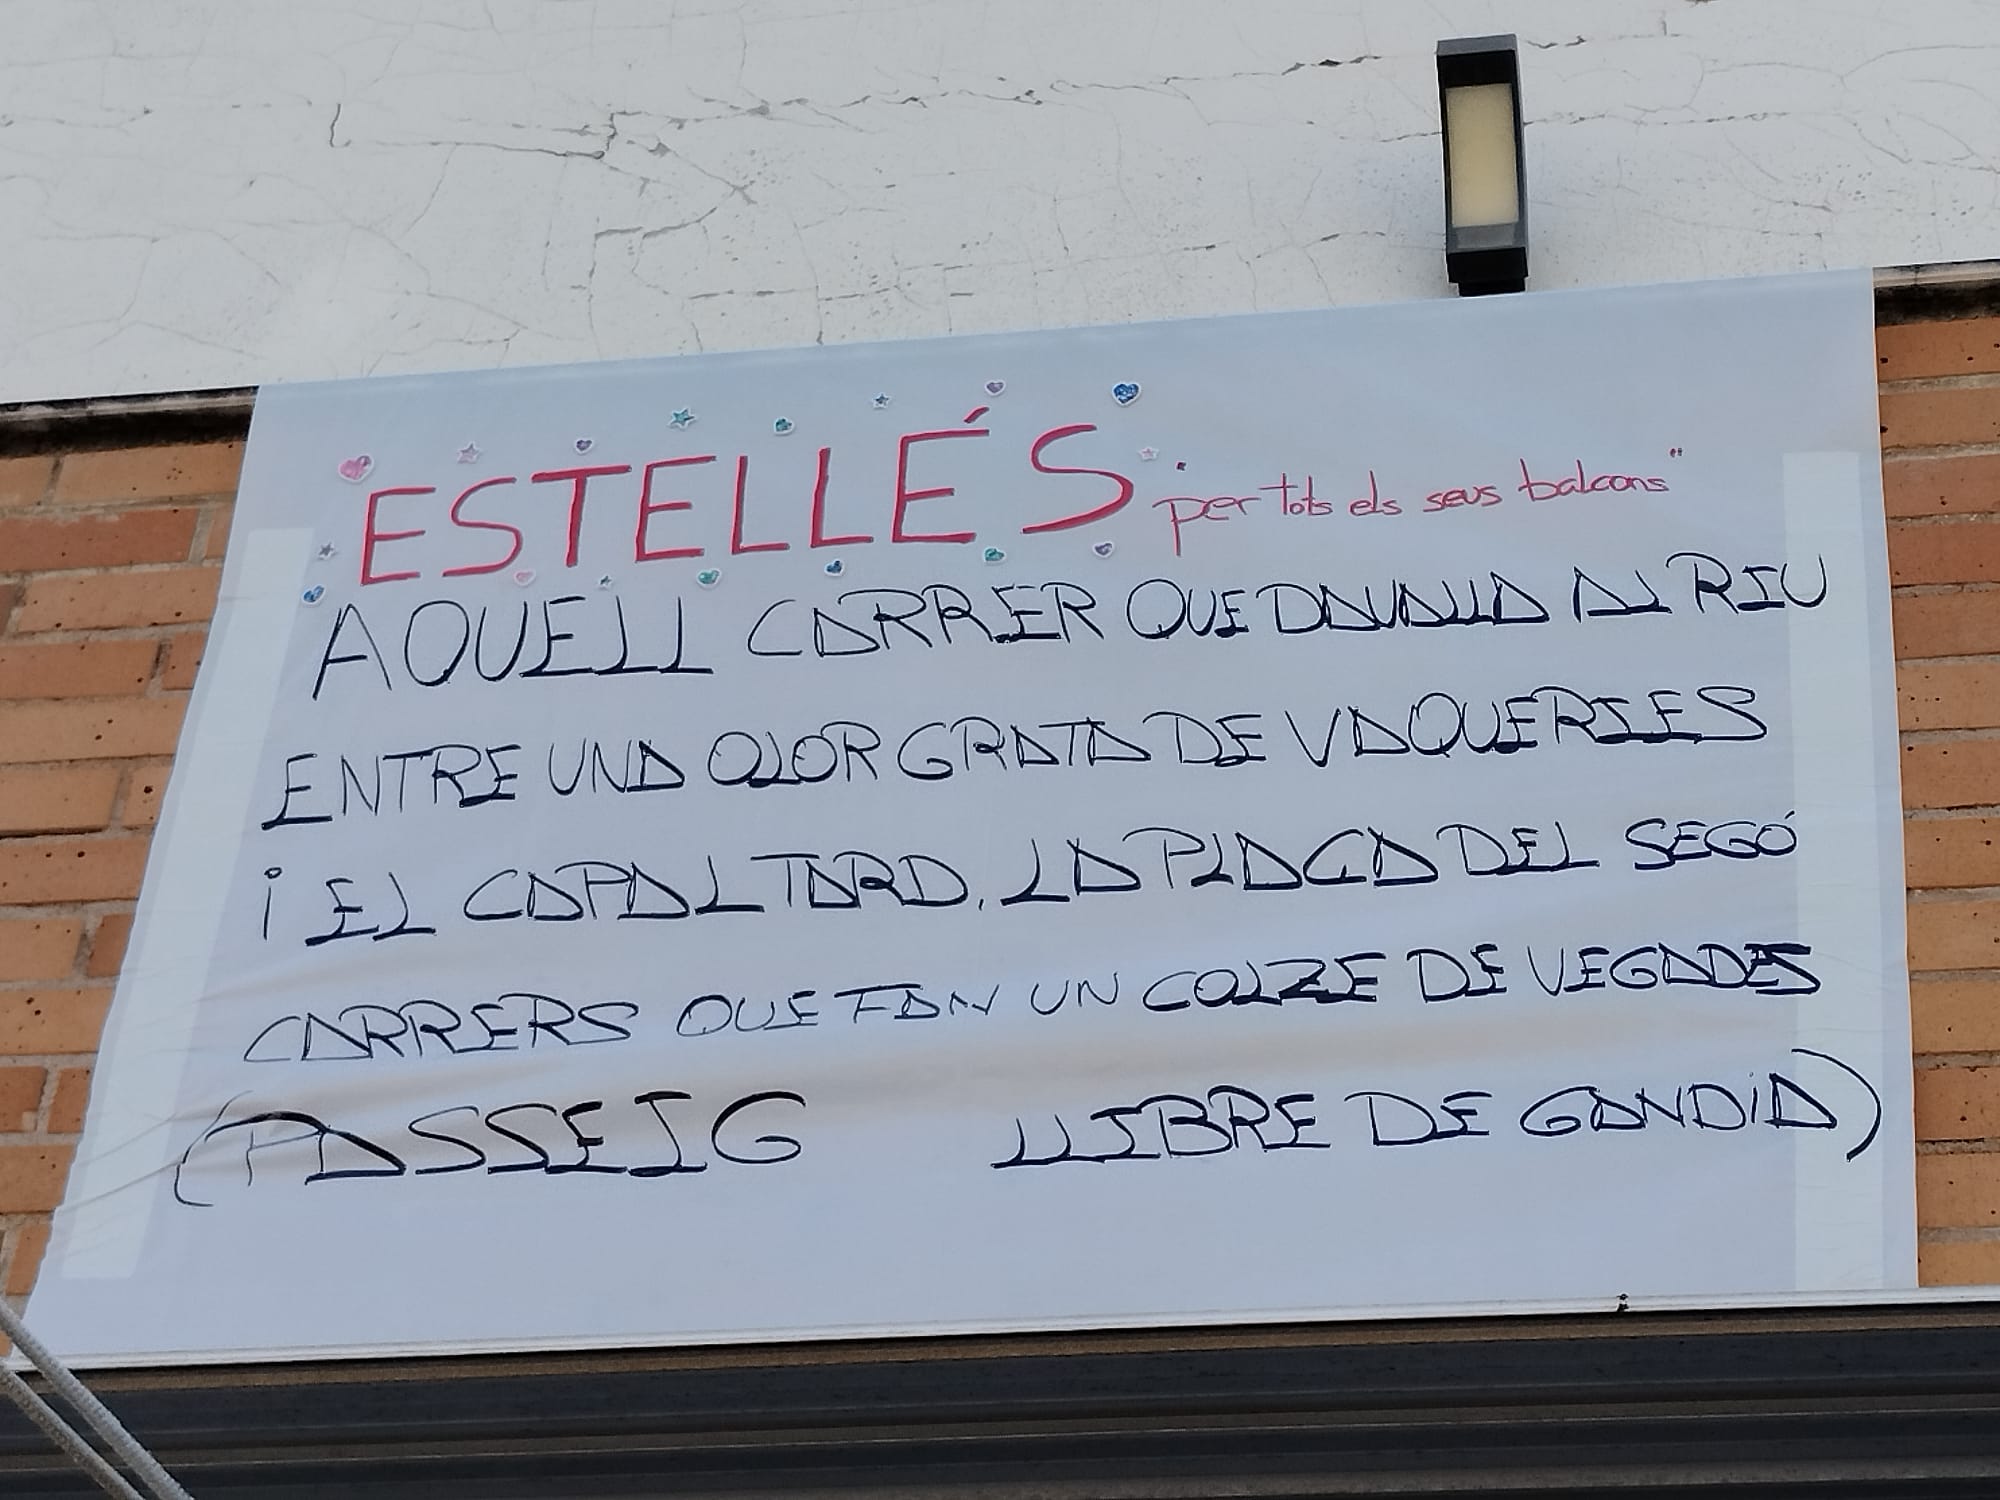 ESTELLÉS "per tots els seus balcons"
AQUELL CARRER QUE DAVALLA AL RIU
ENTRE UNA OLOR GRATA DE VAQUERIES
i EL CAPALTARD, LA PLAÇA DEL SEGÓ
CARRERS QUE FAN UN COLZE DE VEGADES
(PASSEIG LLIBRE DE GANDIA)